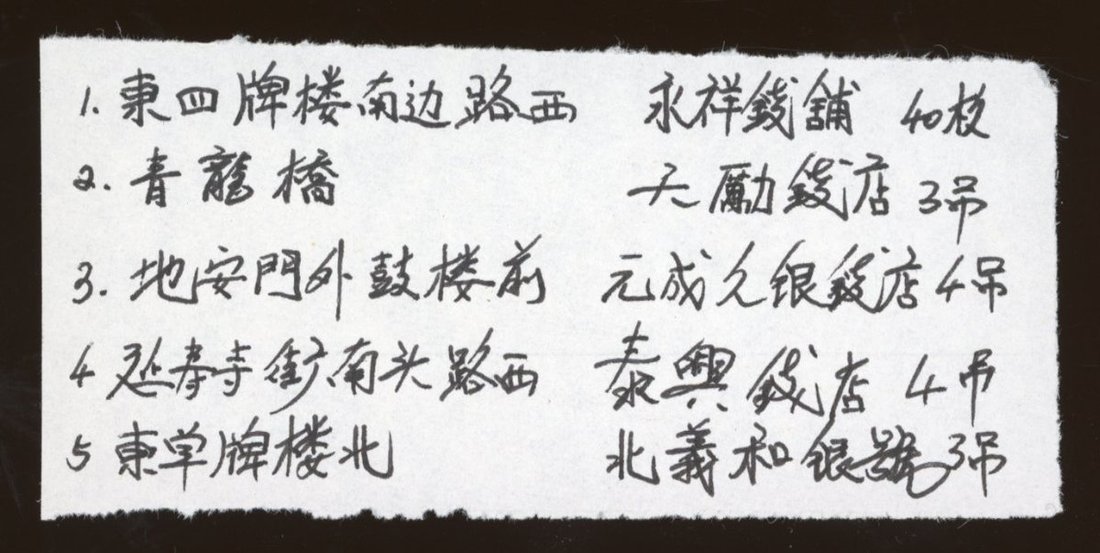 1. 東四牌楼南边路西 永祥錢舖 40枚
2. 青龍橋 天勵錢店 3吊
3. 地安門外鼓楼前 元成久银錢店 4吊
4 延寿寺街南头路西 泰興錢店 4吊
5 東单牌楼北 北義和银號 3吊